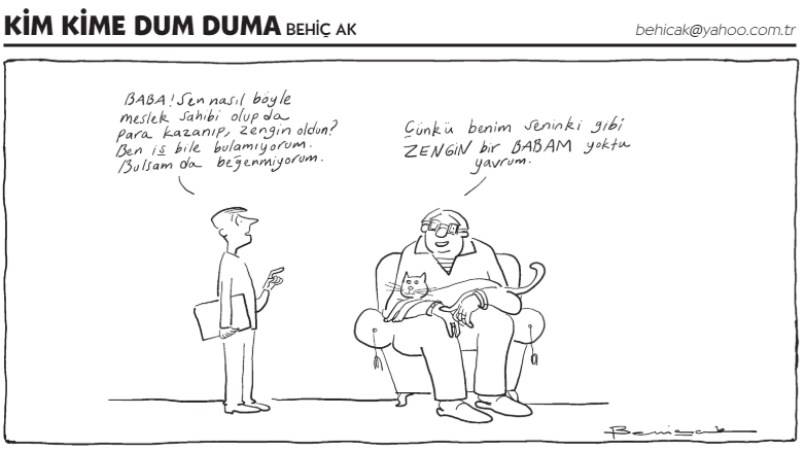 KİM KİME DUM DUMA BEHİÇ AK
behicak@yahoo.com.tr
BABA! Sen nasıl böyle
meslek sahibi olup da
para kazanıp, zengin oldun?
Ben iş bile bulamıyorum.
Bulsam da beğenmiyorum.
Çünkü benim seninki gibi
ZENGİN bir BABAM yoktu
yavrum.
Behiç Ak